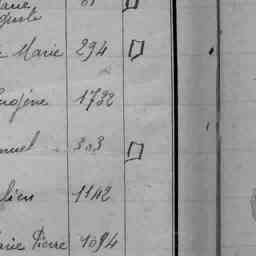 Marie 294
Eugène 1732
nuel 303
lien 1142
Marie Pierre 1094